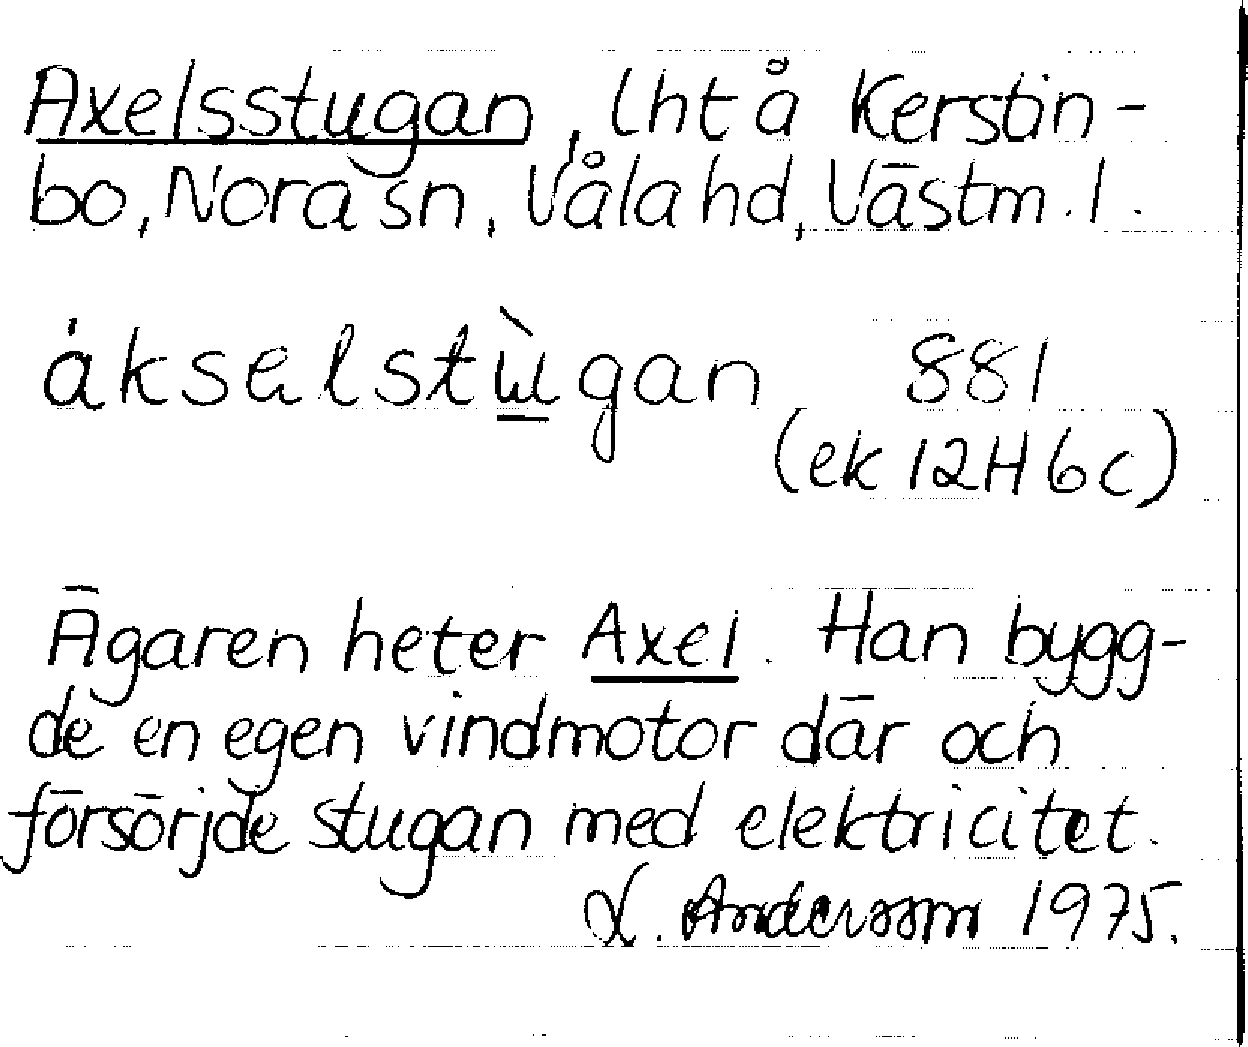 Axelsstugan, lht å Kerstin-
bo, Nora sn, Våla hd, Västm. l.
ákselstùgan 881
(ek 12H 6c)
Ägaren heter Axel. Han bygg-
de en egen vindmotor där och
försörjde stugan med elektricitet.
L. Andersson 1975.